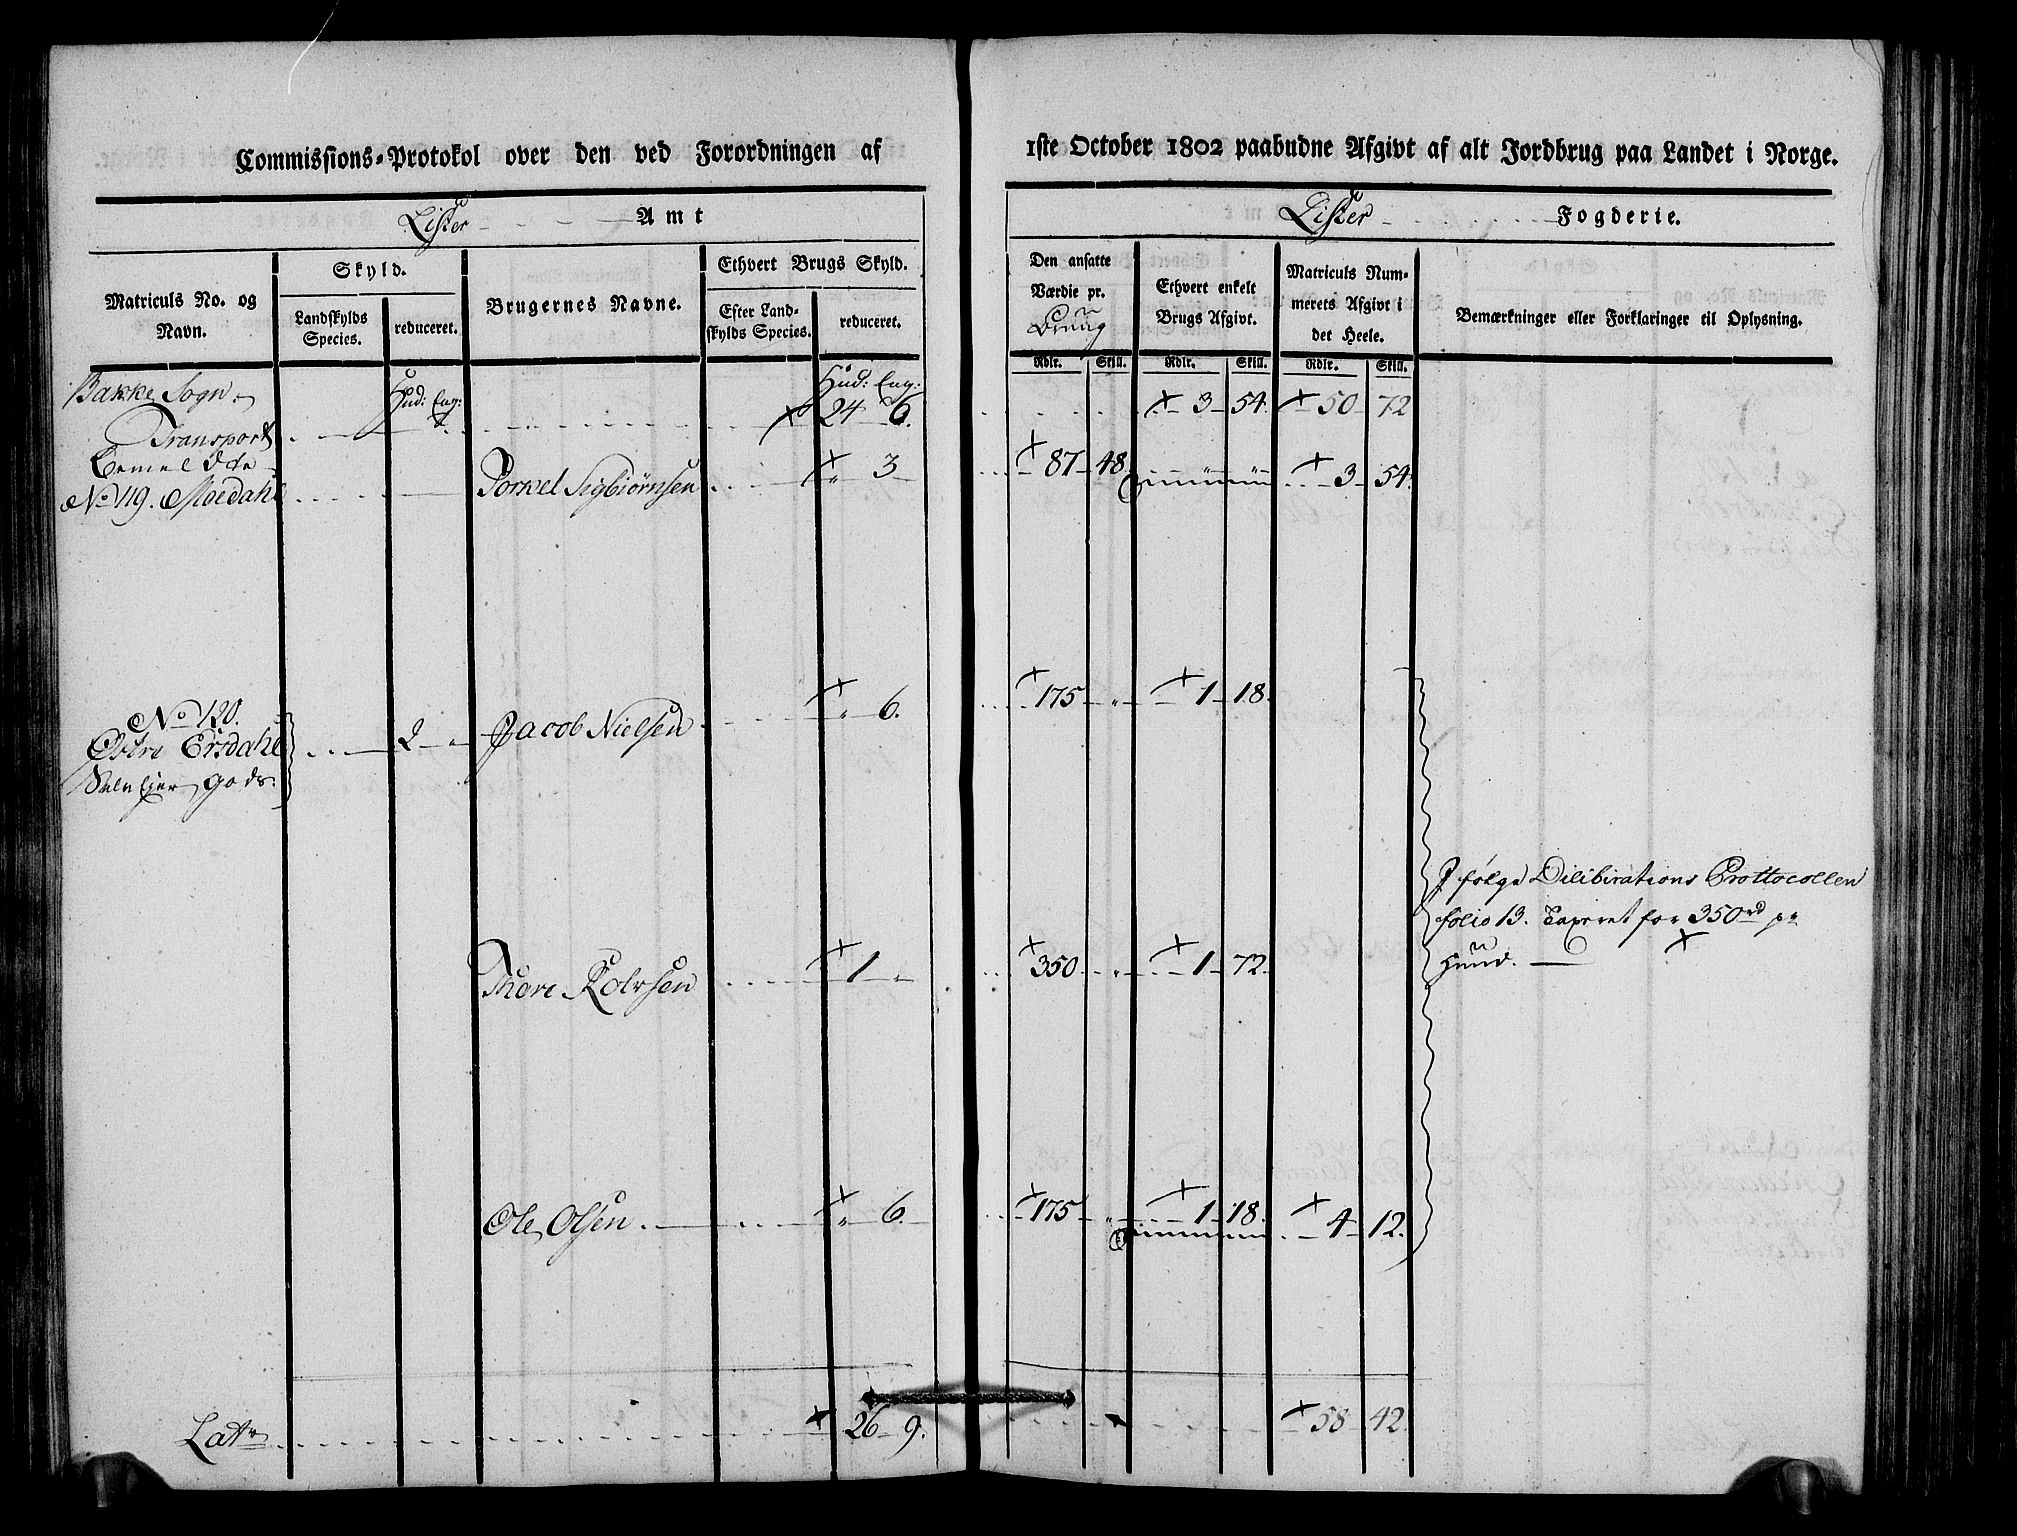 Commissions-Protokol over den ved Forordningen af
1ste October 1802 paabudne Afgivt af alt Jordbrug paa Landet i Norge.
Lister Amt
Lister Fogderie.
Matriculs No. og Navn.
Skyld.
Landskylds Species.
reduceret.
Brugernes Navne.
Ethvert Brugs Skyld.
Efter Landskylds Species.
reduceret.
Den ansatte Værdie pr. Bruug
Ethvert enkelt Brugs Afgivt.
Matriculs Nummerets Afgivt i det Heele.
Bemærkninger eller Forklaringer til Oplysning.
Rdlr. Skill. Rdlr. Skill. Rdlr. Skill.
Bakke Sogn
Hud: Eng: Hud: Eng:
Transport 24 6. 3 54. 50 72
No 119. Moedahl Torkel Sigbiørnsen 3 87 48. 3 54.
No 120.
Østre Ersdahl 2 Jacob Nielsen 6. 175 " 1 18.
gods.
J følge Dilibirations Prottocollen
folio 13. Taxeret for 350rd pr
Huud.
Thore Rolvsen 1 " 350 " 1 72.
Ole Olsen 6. 175 " 1 18. 4 12.
Latr 26 9. 58 42.